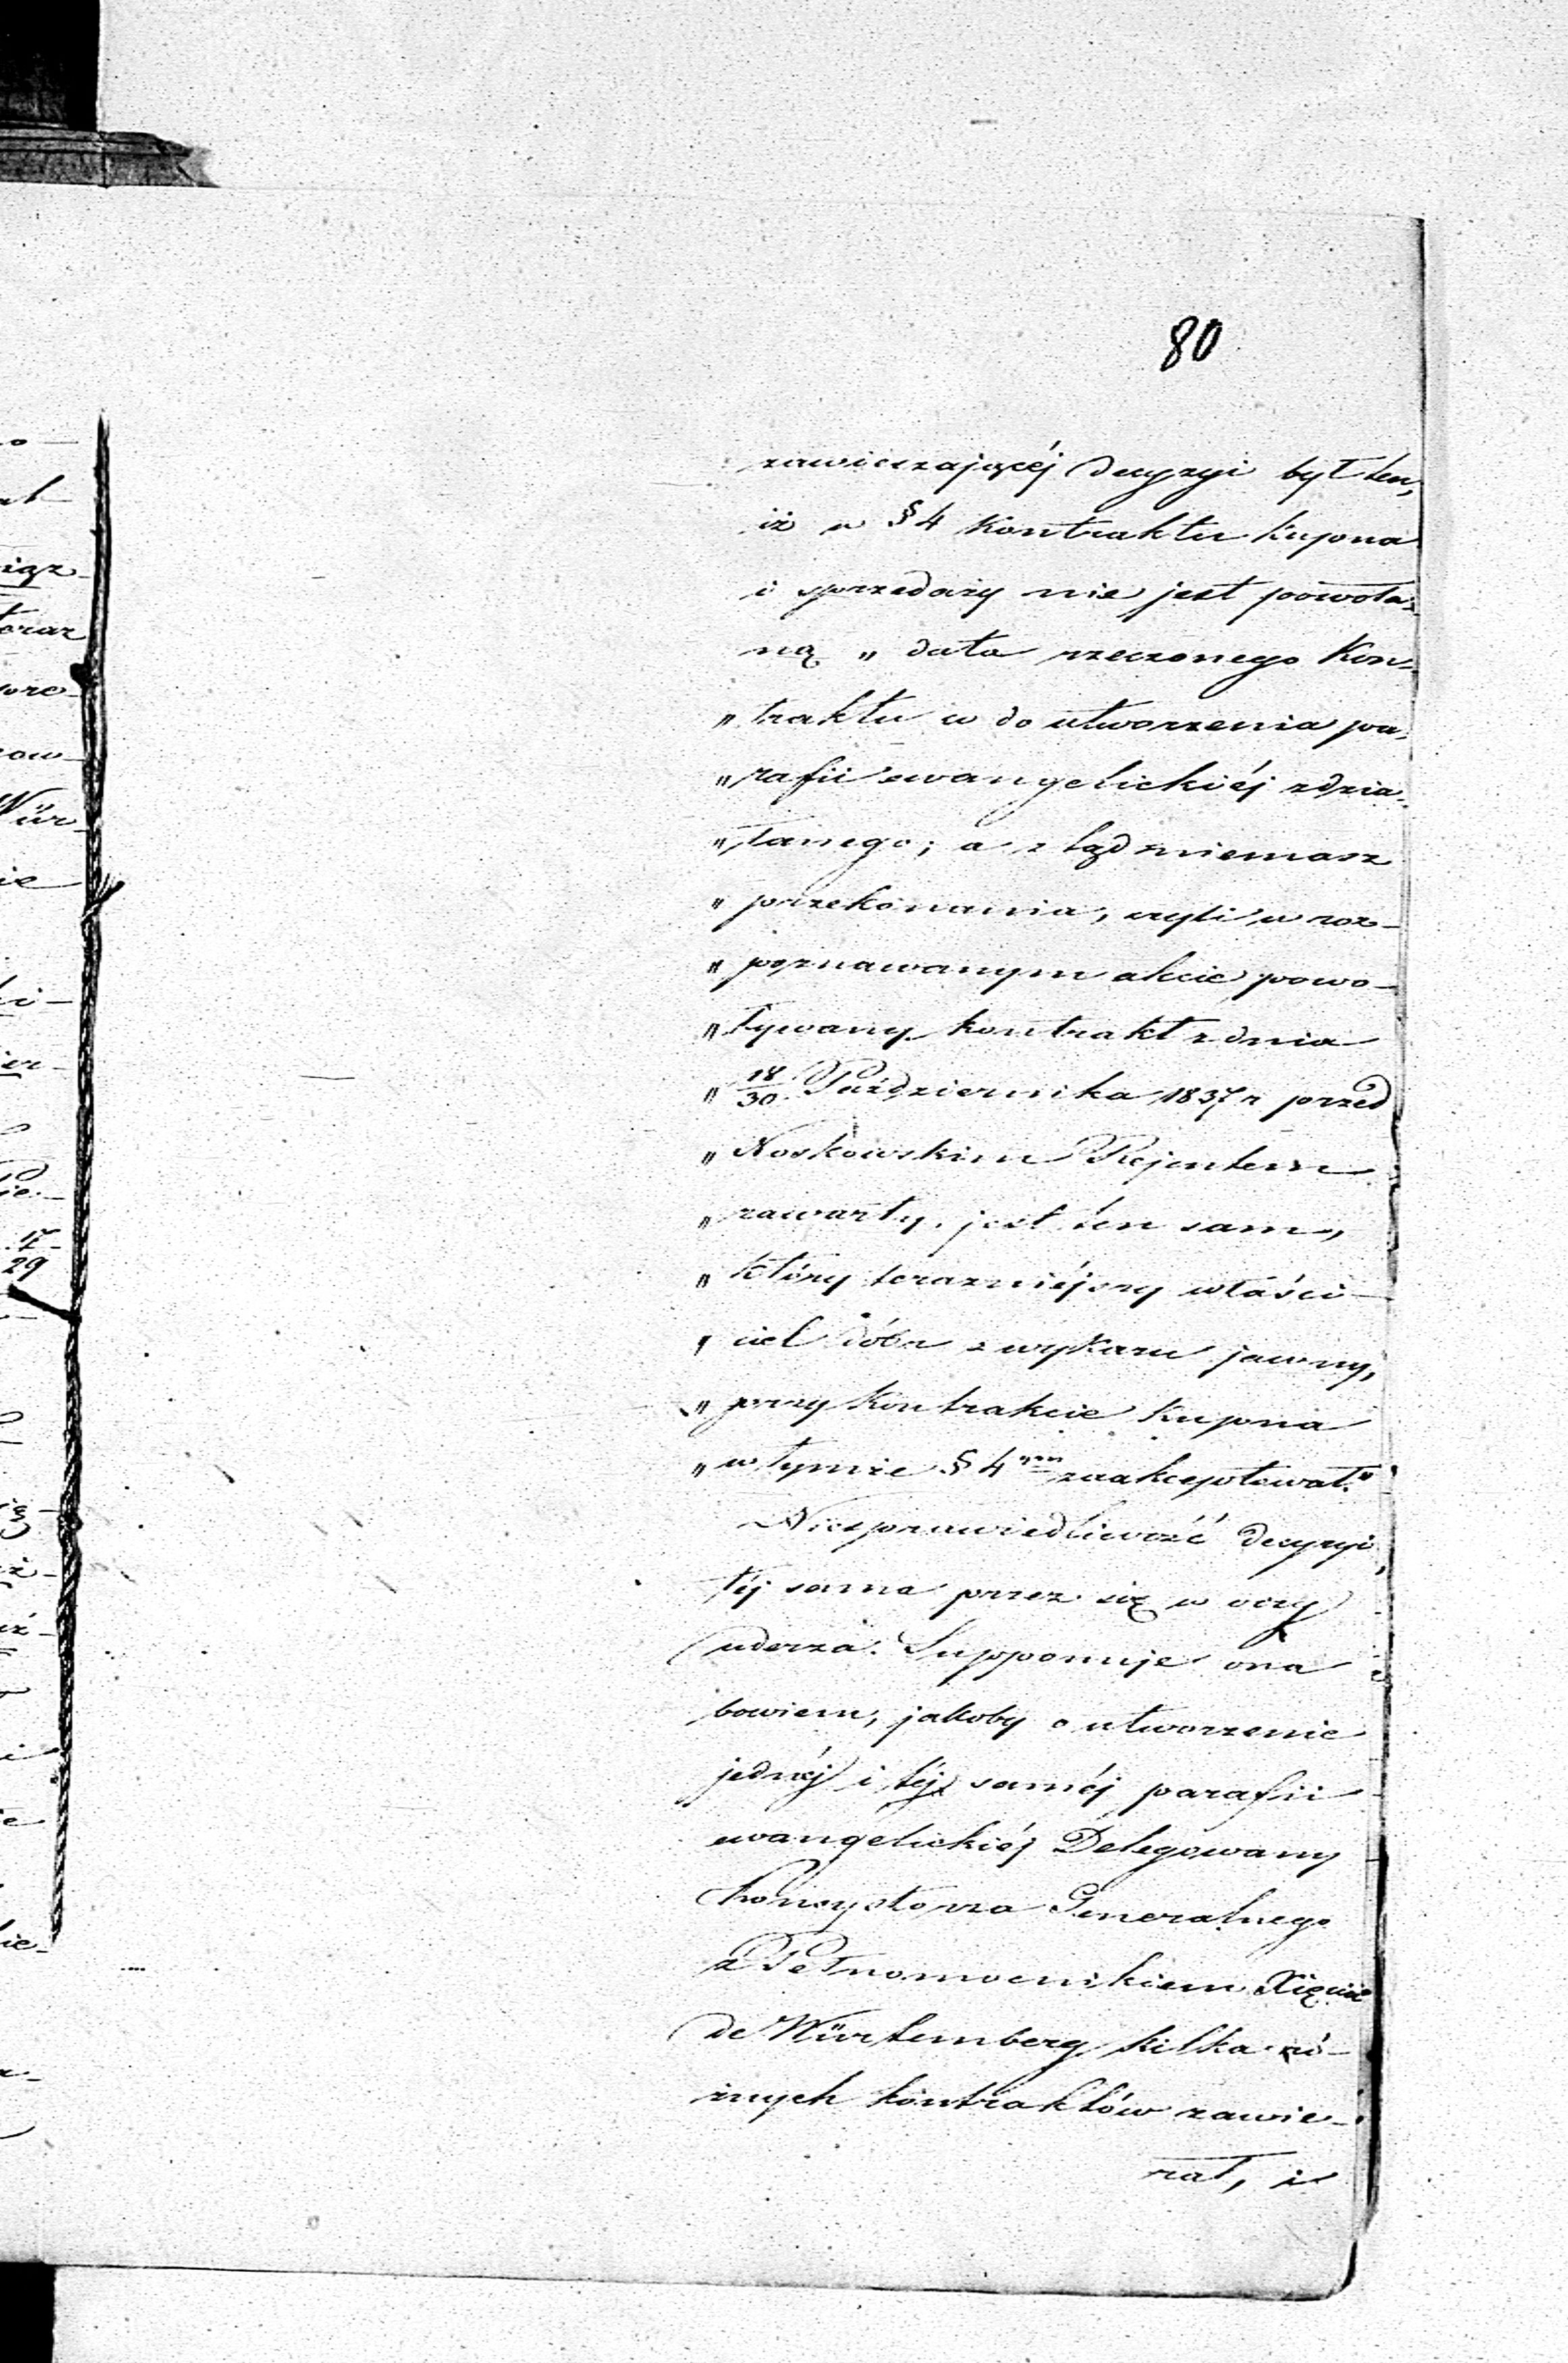 80
zawieszającéj decyzyi był ten,
iż w § 4 Kontraktu Kupna
i sprzedaży nie jest powoła-
ną „ data rzeczonego Kon-
„ traktu w do utworzenia pa-
„ rafii ewangelickiéj zdzia-
„ łanego; a ztąd niemasz
„ przekonania, czyli w roz-
„ poznawanym akcie powo-
„ ływany kontrakt z dnia
„ 18/30 Października 1837 r przed
„ Noskowskim Rejentem
„ zawarty, jest ten sam,
„ który terazniéjszy właści-
„ ciel dóbr z wykazu jawny,
„ przy Kontrakcie Kupna
„ w tymże § 4ym zaakceptował."
Niesprawiedliwość decyzyi
téj sama przez się w oczy
uderza. Supponuje ona
bowiem, jakoby o utworzenie
jednéj i téj saméj parafii
ewangelickiéj Delegowany
Konsystorza Generalnego
z Pełnomocnikiem Xięcia
de Würtemberg kilka ró-
żnych kontraktów zawie-
rał, i